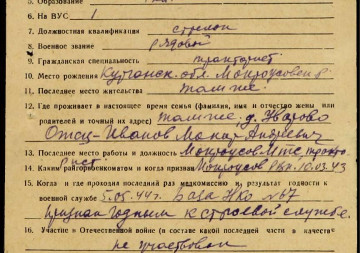 5. Образование
6. На ВУС 1
7. Должностная квалификация стрелок
8. Военное звание рядовой
9. Гражданская специальность тракторист
10. Место рождения Курганск. обл. Мокроусовск. р.
11. Последнее место жительства там же
12. Где проживает в настоящее время семья (фамилия, имя и отчество жены или
родителей и точный их адрес) там же, д.
Отец - Иванов Макар Андреевич
13. Последнее место работы и должность Мокроусов. МТС, тракто-
рист
14. Каким райгорвоенкоматом и когда призван Мокроусов РВК 10.03.43
15. Когда и где проходил последний раз медкомиссию и результат годности к
военной службе 5.05.44 г. База НКО №67
признан годным к строевой службе.
16. Участие в Отечественной войне (в составе какой последней части в качестве
не участвовал